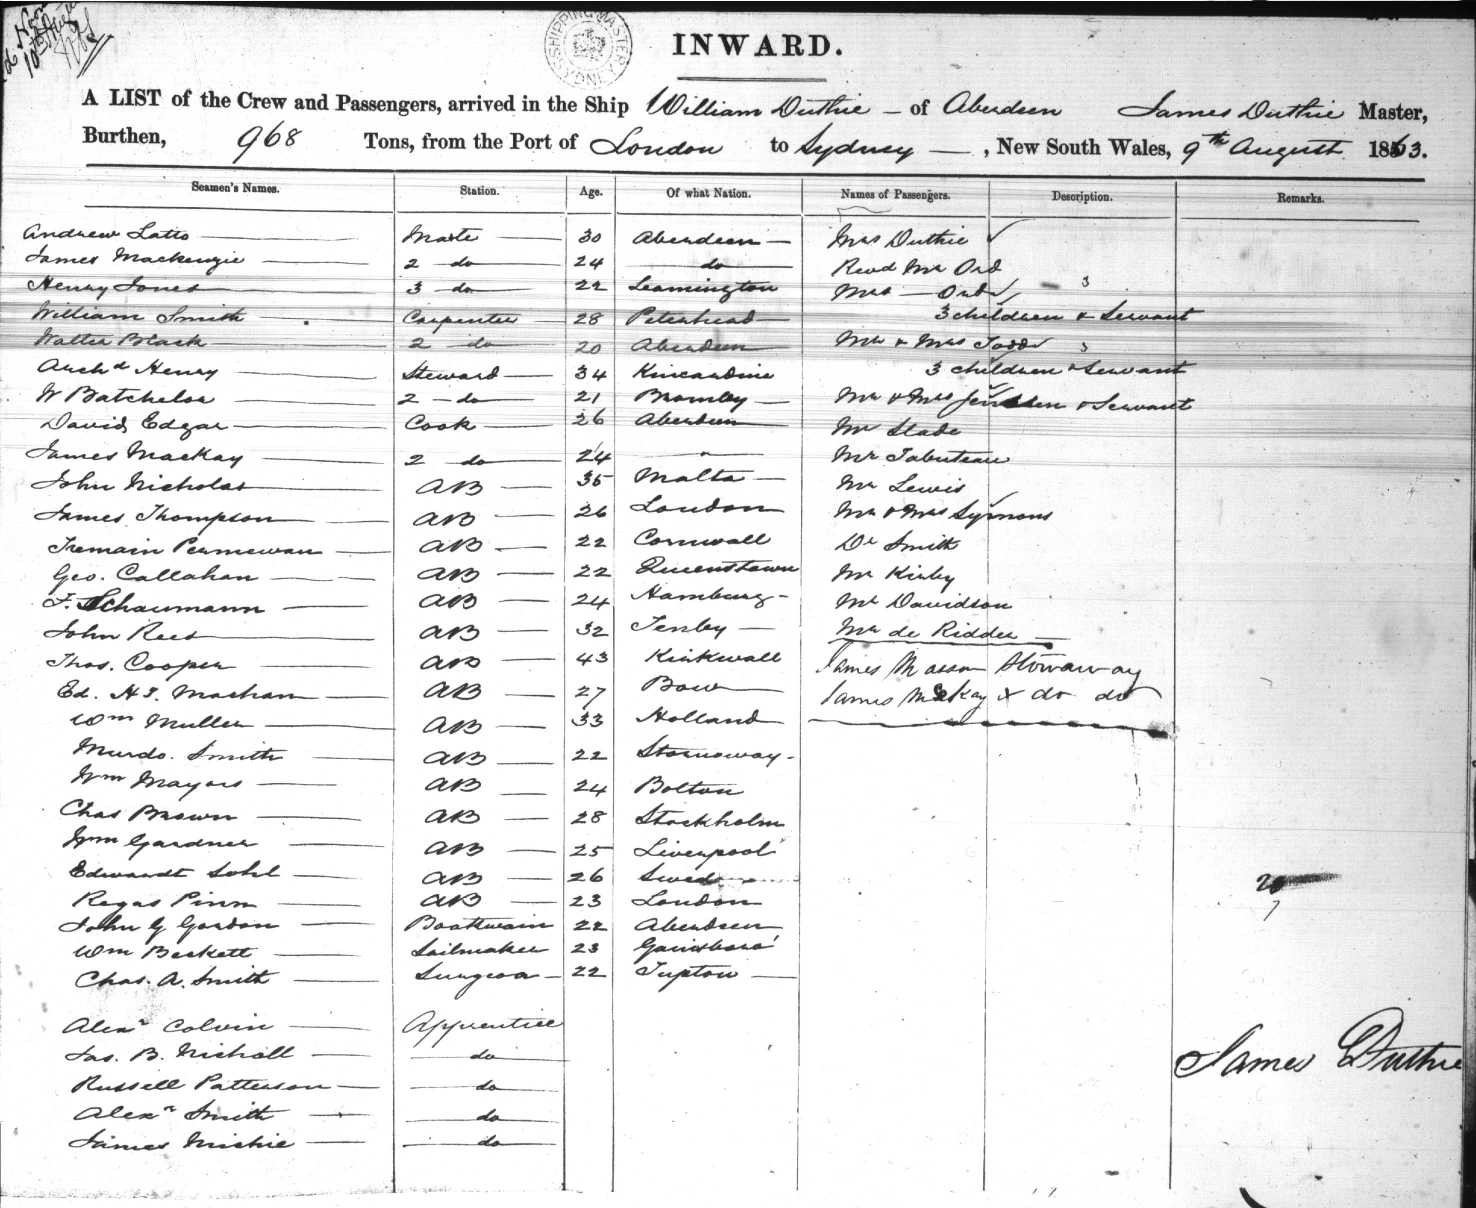 10th Aug
SHIPPING MASTER SYDNEY
INWARD.
A LIST of the Crew and Passengers, arrived in the Ship William Duthie – of Aberdeen James Duthie Master,
Burthen, 968 Tons, from the Port of London to Sydney —, New South Wales, 9th August 1863.
Seamen's Names. Station. Age. Of what Nation. Names of Passengers. Description. Remarks.
Andrew Latto — Mate — 30 Aberdeen — Mrs Duthie ✓
James Mackenzie — 2 do — 24 — do — Revd Mr Ord
Henry Jones — 3 do — 22 Leamington Mrs — Ord ✓ 3
William Smith — Carpenter 28 Peterhead — 3 children & Servant
Walter Black — 2 do — 20 Aberdeen Mr & Mrs Todd ✓ 3
Archd Henry — Steward — 34 Kincardine 3 children & Servant
W Batchelor — 2 – do — 21 Bromley — Mr & Mrs & Servant
David Edgar — Cook — 26 Aberdeen Mr Slade
James Mackay — 2 do — 24 — " — Mr Tabuteau
John Nicholas — AB — 35 Malta — Mr Lewis
James Thompson — AB — 26 London Mr & Mrs Symons
Tremain Permewan — AB — 22 Cornwall Dr Smith
Geo. Callahan — AB — 22 Queenstown Mr Kirby
F. Schaumann — AB — 24 Hamburg – Mr Davidson
John Rees — AB — 32 Tenby — Mr de Ridder —
Thos. Cooper — AB — 43 Kirkwall James Masson Stowaway
Ed. H. J. Macham — AB — 27 Bow — James McKay x do do
Wm Muller — AB — 33 Holland
Murdo. Smith — AB — 22 Stornoway –
Wm Mayors — AB — 24 Bolton
Chas Brown — AB — 28 Stockholm
Wm Gardner — AB — 25 Liverpool
Edwardt Sohl — AB — 26 Swed
Regas Pinn — AB — 23 London
John G Gordon — Boatswain 22 Aberdeen
Wm Beckett — Sailmaker 23 Gainsboro'
Chas. A. Smith — Surgeon – 22 Tupton —
Alexr Colvin — Apprentice
Jas. B. Nicholl — — do —
Russell Patterson — — do —
Alexr Smith — — do —
James Michie — — do —
James Duthie